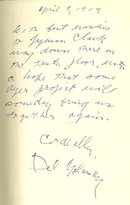 April 9, 1909
With best wishes
to Lyman Clark
way down there on
the tenth floor, with
a hope that some
ages project will
someday bring us
together again.
Cordially,
Del